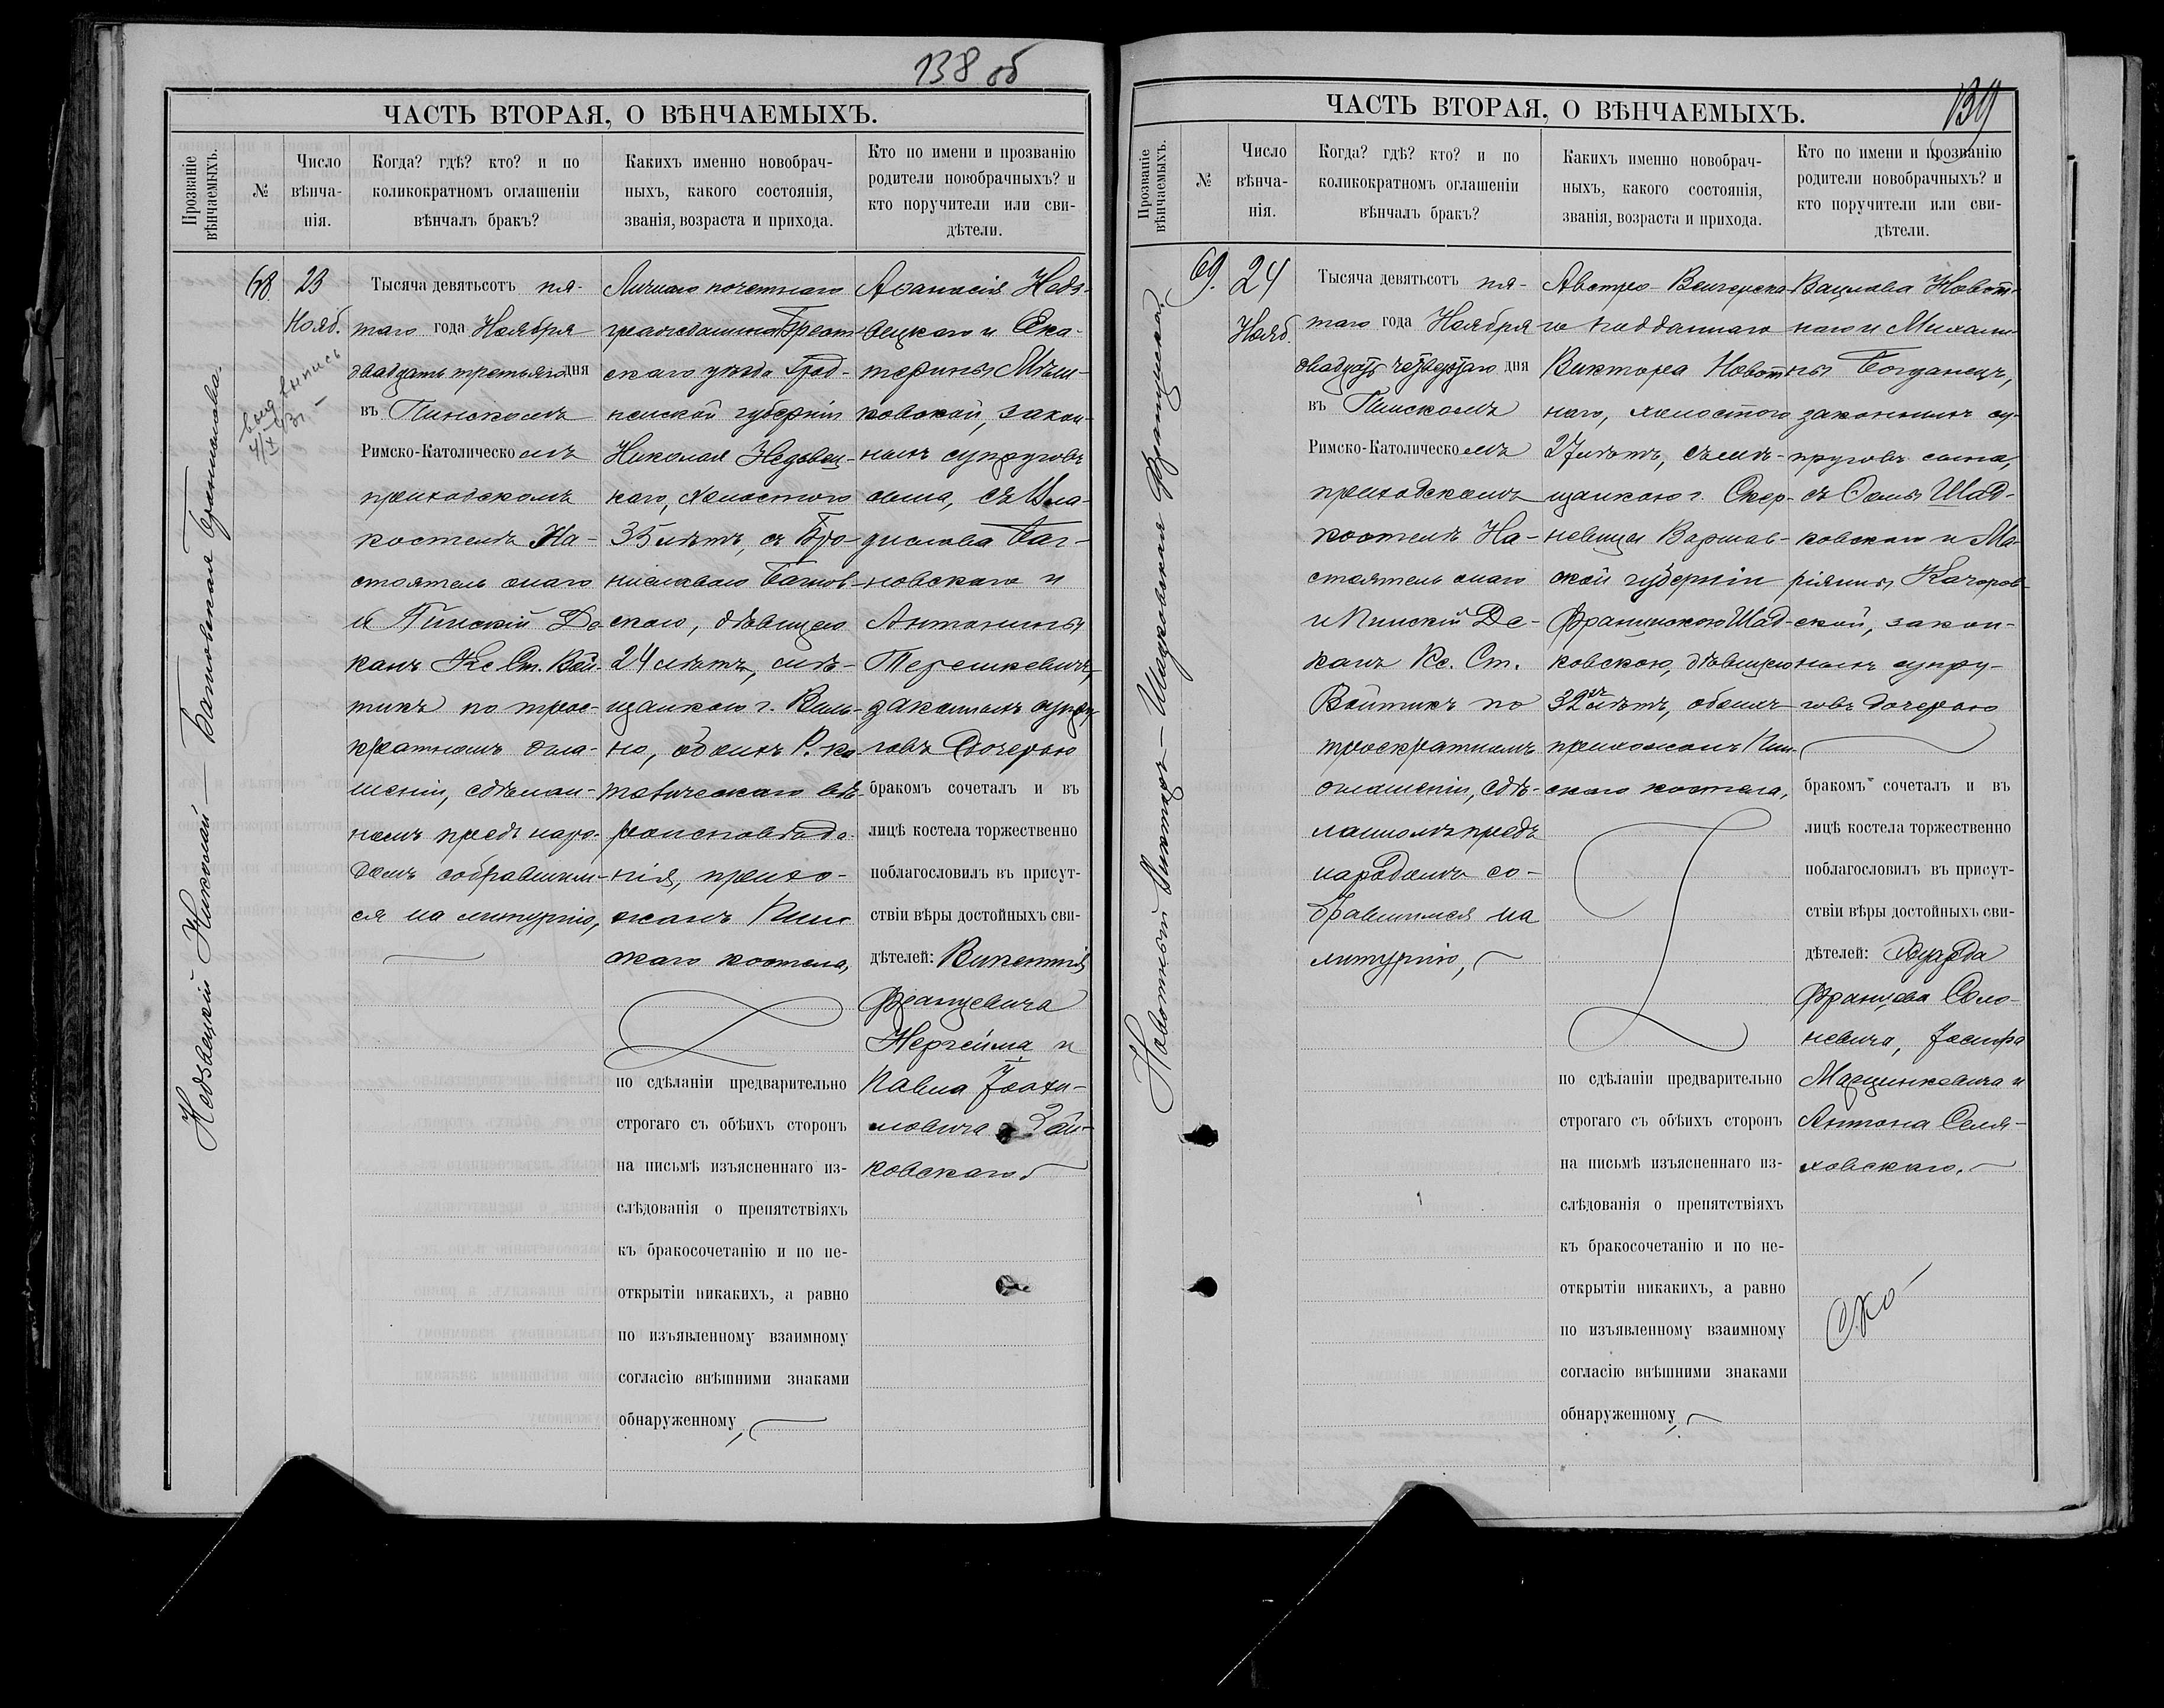 138 об
ЧАСТЬ ВТОРАЯ, О ВѢНЧАЕМЫХЪ.
Прозваніе
вѣнчаемыхъ.
№
Число
вѣнча-
нія.
Когда? гдѣ? кто? и по
коликократномъ оглашеніи
вѣнчалъ бракъ?
Какихъ именно новобрач-
ныхъ, какого состоянія,
званія, возраста и прихода.
Кто по имени и прозванію
родители новобрачныхъ? и
кто поручители или сви-
дѣтели.
Недзвецкій Николай — Багновская Бронислава.
68.
выд. выпись
23
Нояб.
Тысяча девятьсотъ пя-
таго года Ноября
двадцать третьяго дня
въ Пинскомъ
Римско-Католическомъ
приходскомъ
костелѣ На-
стоятель онаго
и Пинскій Де-
канъ Кс. Ст. Вой-
тикъ по трое-
кратномъ огла-
шеніи, сдѣлан-
номъ предъ наро-
домъ собравшим-
ся на литургію,
Личнаго почетнаго
гражданина Брест-
скаго уѣзда Грод-
ненской губерніи
Николая Недзвец-
каго, холостого
35 лѣтъ, съ Бро-
ниславою Багнов-
скою, дѣвицею
24 лѣтъ, мѣ-
щанкою г. Виль-
но, обоихъ Р. ка-
толическаго вѣ-
роисповѣда-
нія, прихо-
жанъ Пин-
скаго костела,
по сдѣланіи предварительно
строгаго съ обѣихъ сторонъ
на письмѣ изъясненнаго из-
слѣдованія о препятствіяхъ
къ бракосочетанію и по не-
открытіи никакихъ, а равно
по изъявленному взаимному
согласію внѣшними знаками
обнаруженному,
Аѳанасія Недз-
вецкаго и Ека-
терины
закон-
ныхъ супруговъ
сына, съ Вла-
дислава Баг-
новскаго и
Антонины
Терешкевичъ,
законныхъ супру-
говъ дочерью
бракомъ сочеталъ и въ
лицѣ костела торжественно
поблагословилъ въ присут-
ствіи вѣры достойныхъ сви-
дѣтелей: Викентія
Францевича
и
Павла Іоахи-
мовича
139
ЧАСТЬ ВТОРАЯ, О ВѢНЧАЕМЫХЪ.
Прозваніе
вѣнчаемыхъ.
№
Число
вѣнча-
нія.
Когда? гдѣ? кто? и по
коликократномъ оглашеніи
вѣнчалъ бракъ?
Какихъ именно новобрач-
ныхъ, какого состоянія,
званія, возраста и прихода.
Кто по имени и прозванію
родители новобрачныхъ? и
кто поручители или сви-
дѣтели.
Новотный Викторъ — Шадковская Франциска.
69.
24
Нояб.
Тысяча девятьсотъ пя-
таго года Ноября
двадцать четвертаго дня
въ Пинскомъ
Римско-Католическомъ
приходскомъ
костелѣ На-
стоятель онаго
и Пинскій Де-
канъ Кс. Ст.
Войтикъ по
троекратномъ
оглашеніи, сдѣ-
ланномъ предъ
народомъ со-
бравшимся на
литургію,
Австро-Венгерска-
го подданнаго
Виктора Новот-
наго, холостого
27 лѣтъ, съ мѣ-
щанкою г. Скер-
невицы Варшав-
ской губерніи
Францискою Шад-
ковскою, дѣвицею
32 лѣтъ, обоихъ
прихожанъ Пин-
скаго костела,
по сдѣланіи предварительно
строгаго съ обѣихъ сторонъ
на письмѣ изъясненнаго из-
слѣдованія о препятствіяхъ
къ бракосочетанію и по не-
открытіи никакихъ, а равно
по изъявленному взаимному
согласію внѣшними знаками
обнаруженному,
Вацлава Новот-
наго и Михали-
ны Богданецъ,
законныхъ су-
пруговъ сына,
съ Ѳомы Шад-
ковскаго и Ма-
ріянны Качоров-
ской, закон-
ныхъ супру-
говъ дочерью
бракомъ сочеталъ и въ
лицѣ костела торжественно
поблагословилъ въ присут-
ствіи вѣры достойныхъ сви-
дѣтелей: Эдуарда
Францова Соло-
невича, Іосифа
Марцинкевича и
Антона Селя-
ховскаго.